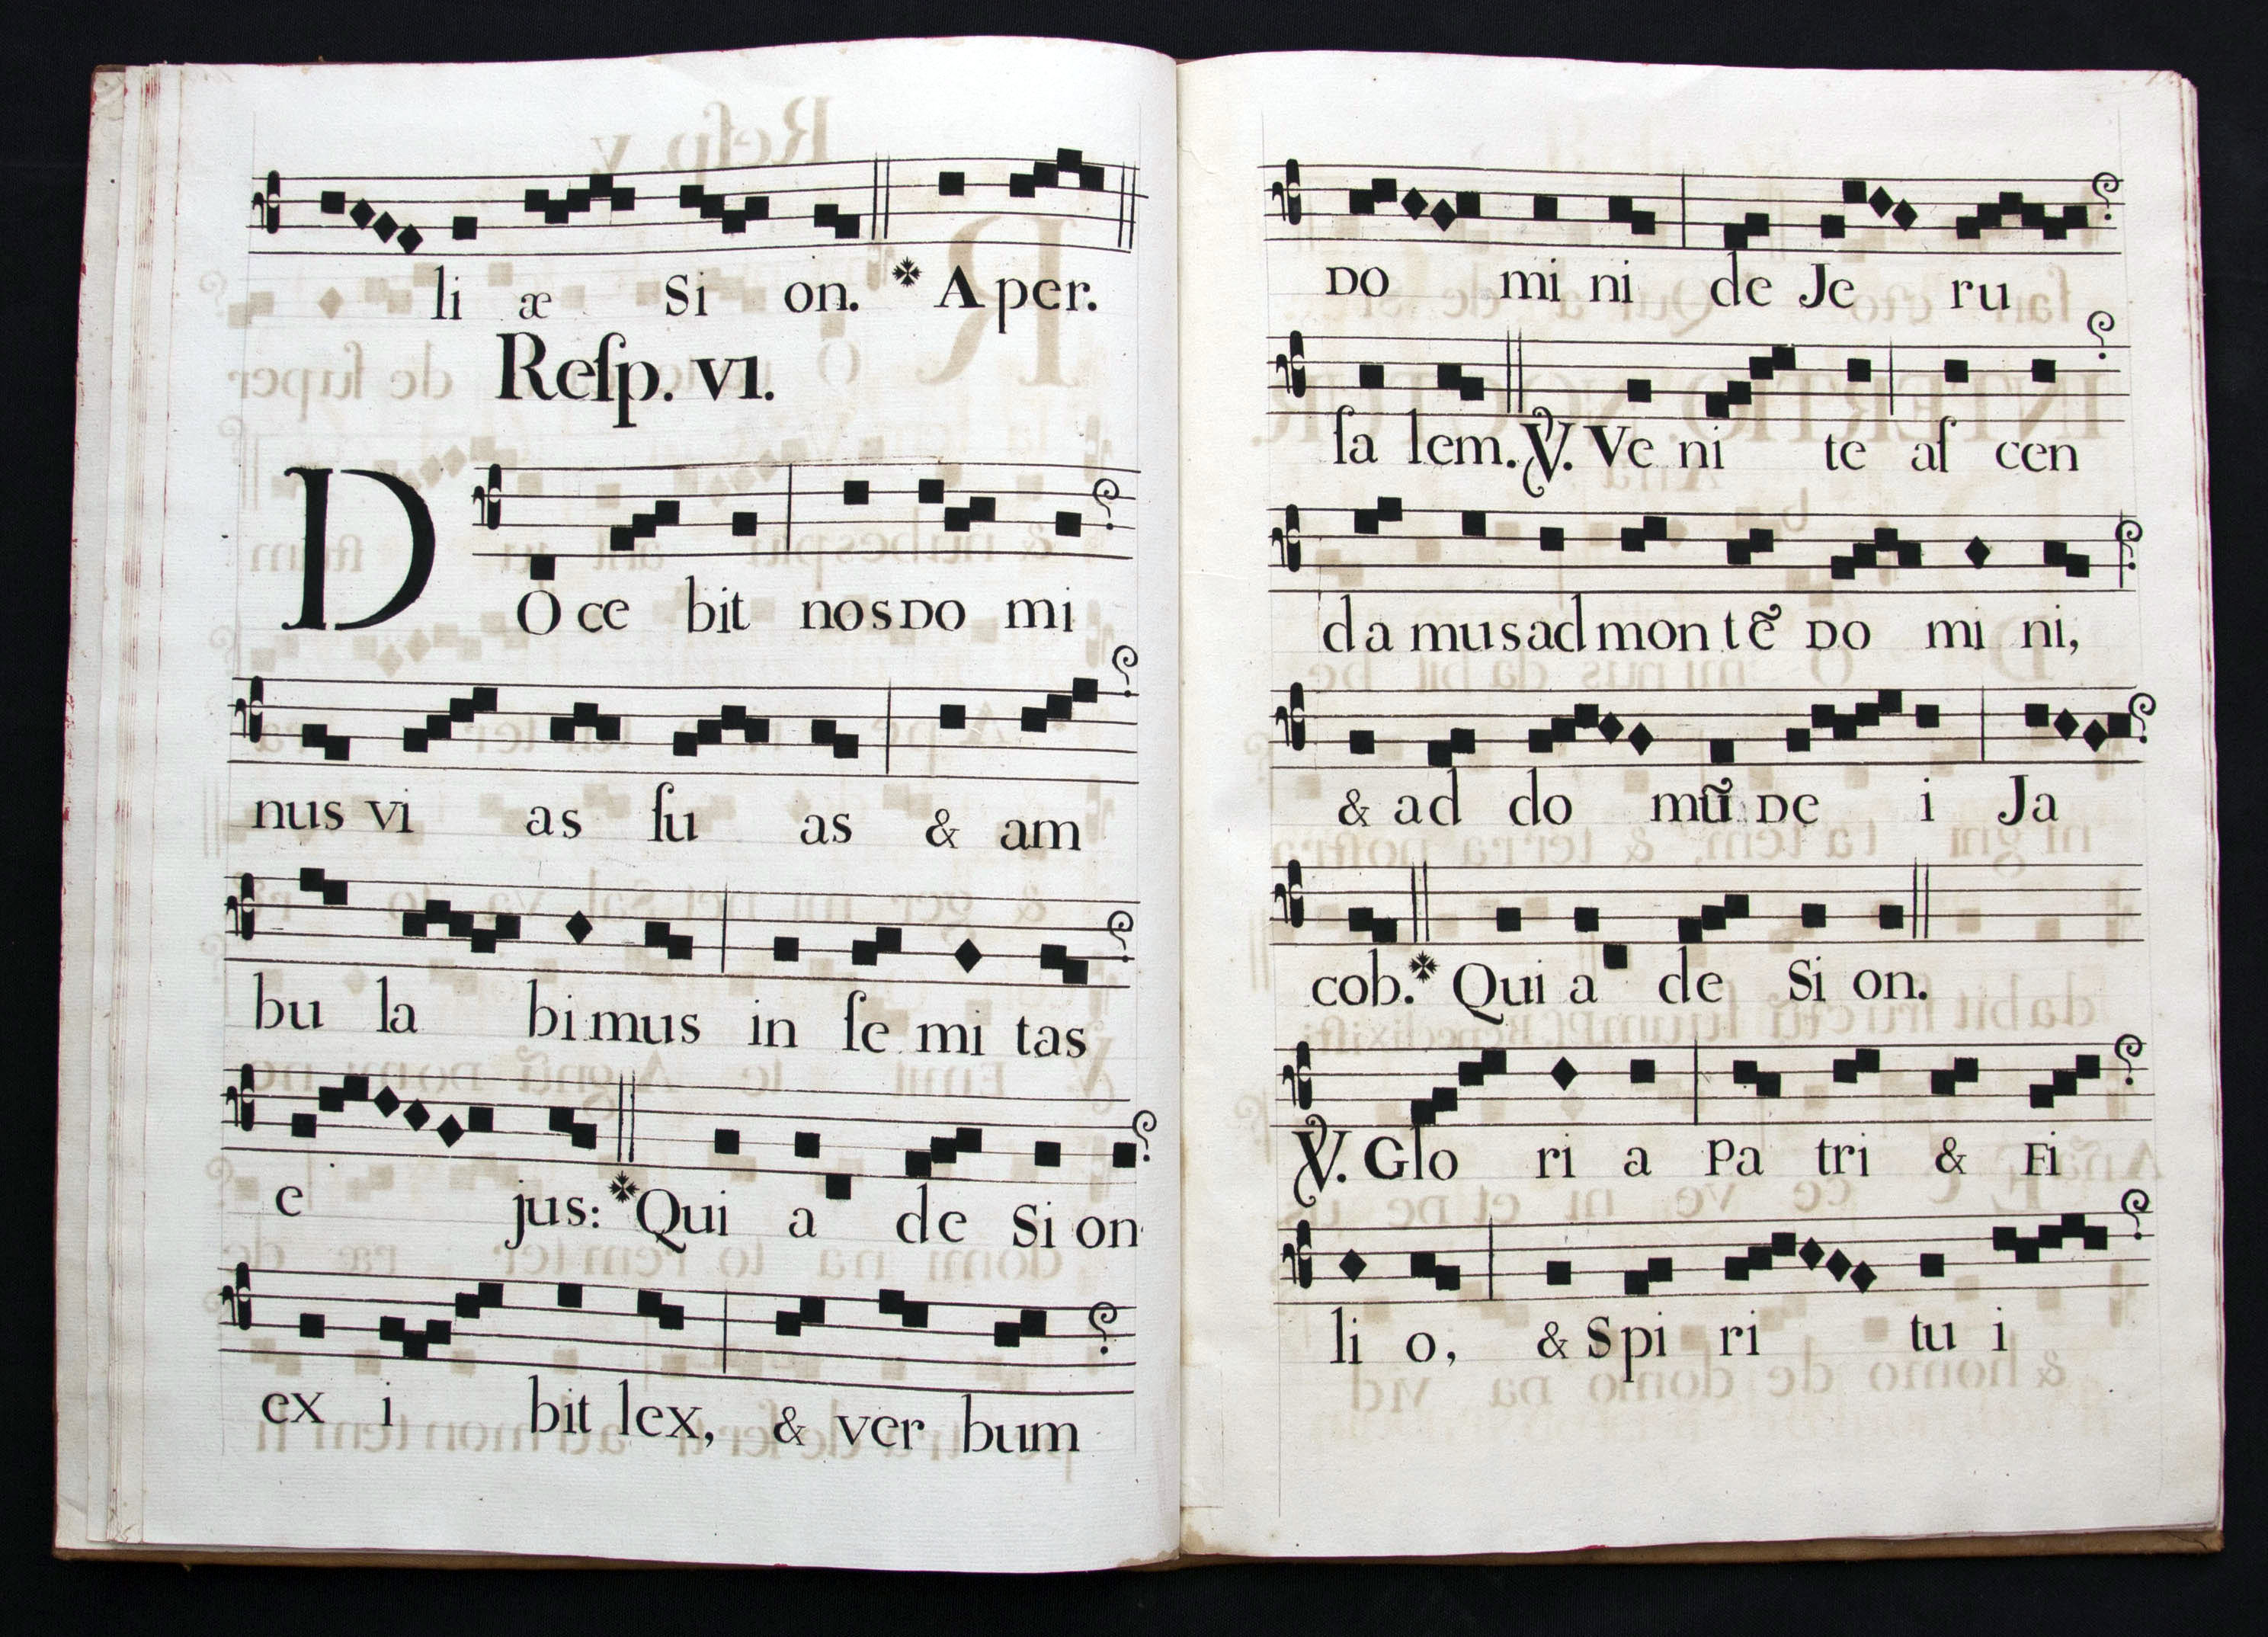 li æ Si on. * Aper.
Reſp. VI.
DOce bit nos Do mi
nus vi as ſu as & am
bu la bimus in ſe mi tas
e jus: * Qui a de Si on
ex i bit lex, & ver bum
Do mi ni de Je ru
ſa lem. ℣. Ve ni te aſ cen
da mus ad mon tẽ Do mi ni,
& ad do mũ De i Ja
cob. * Qui a de Si on.
℣. Glo ri a Pa tri & Fi
li o, & Spi ri tu i